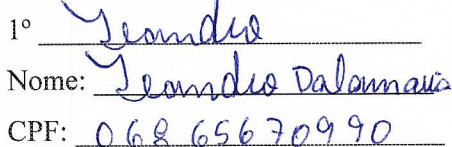 1º Leandro
Nome: Leandro Dalannaria
CPF: 068 656 709 90